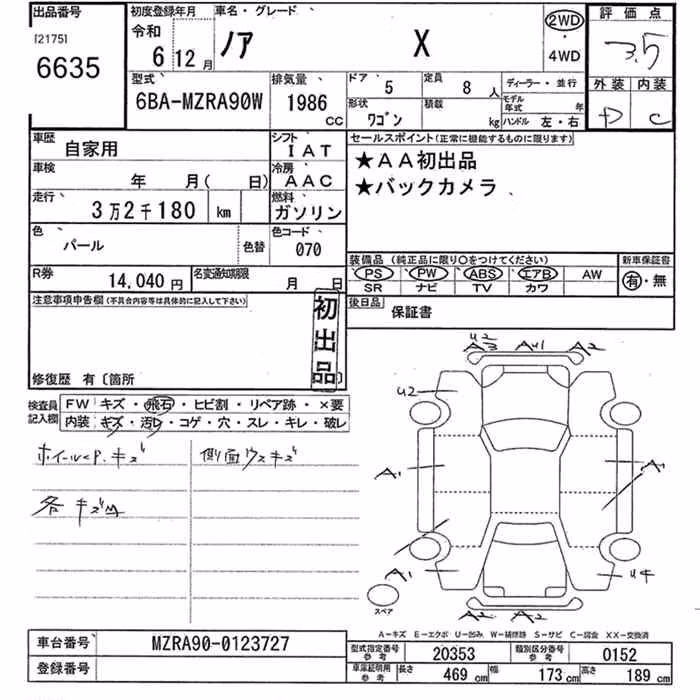 出品番号 初度登録年月 車名・グレード 評価点
[2175] 令和
6635 6年 12月 ノア X 2WD・4WD 3.5
外装 内装
D C
型式 排気量 ドア 定員 ディーラー・並行
6BA-MZRA90W 1986 CC 5 8 人
形状 積載 モデル年式 年
ワゴン kg ハンドル 左・右
車歴 自家用 シフト IAT
セールスポイント(正常に機能するものに限ります)
★AA初出品
★バックカメラ
車検 年 月( 日) 冷房 AAC
走行 3万2千180 km 燃料 ガソリン
色 パール 色替 色コード 070
装備品 (純正品に限り〇をつけてください) 新車保証書
PS PW ABS エアB AW 有・無
SR ナビ TV カワ
R券 14,040 円 名変通知期限 月 日
後日品 保証書
注意事項申告欄(不具合内容等は具体的に記入して下さい)
初出品
修復歴 有〔箇所 〕
検査員記入欄 FW キズ・飛石・ヒビ割・リペア跡・×要
内装 キズ・汚レ・コゲ・穴・スレ・キレ・破レ
ホイールCP.キズ 側面ウスキズ
各キズ
U2
A3 AU1 A2
U2
A1 A1
A1 U4
スペア
A2 A2
A-キズ E-エクボ U-凹み W-補修跡 S-サビ C-腐食 XX-交換済
車台番号 MZRA90-0123727
型式指定番号 参考 20353 類別区分番号 参考 0152
登録番号
車庫証明用 参考 長さ 469 cm 幅 173 cm 高さ 189 cm